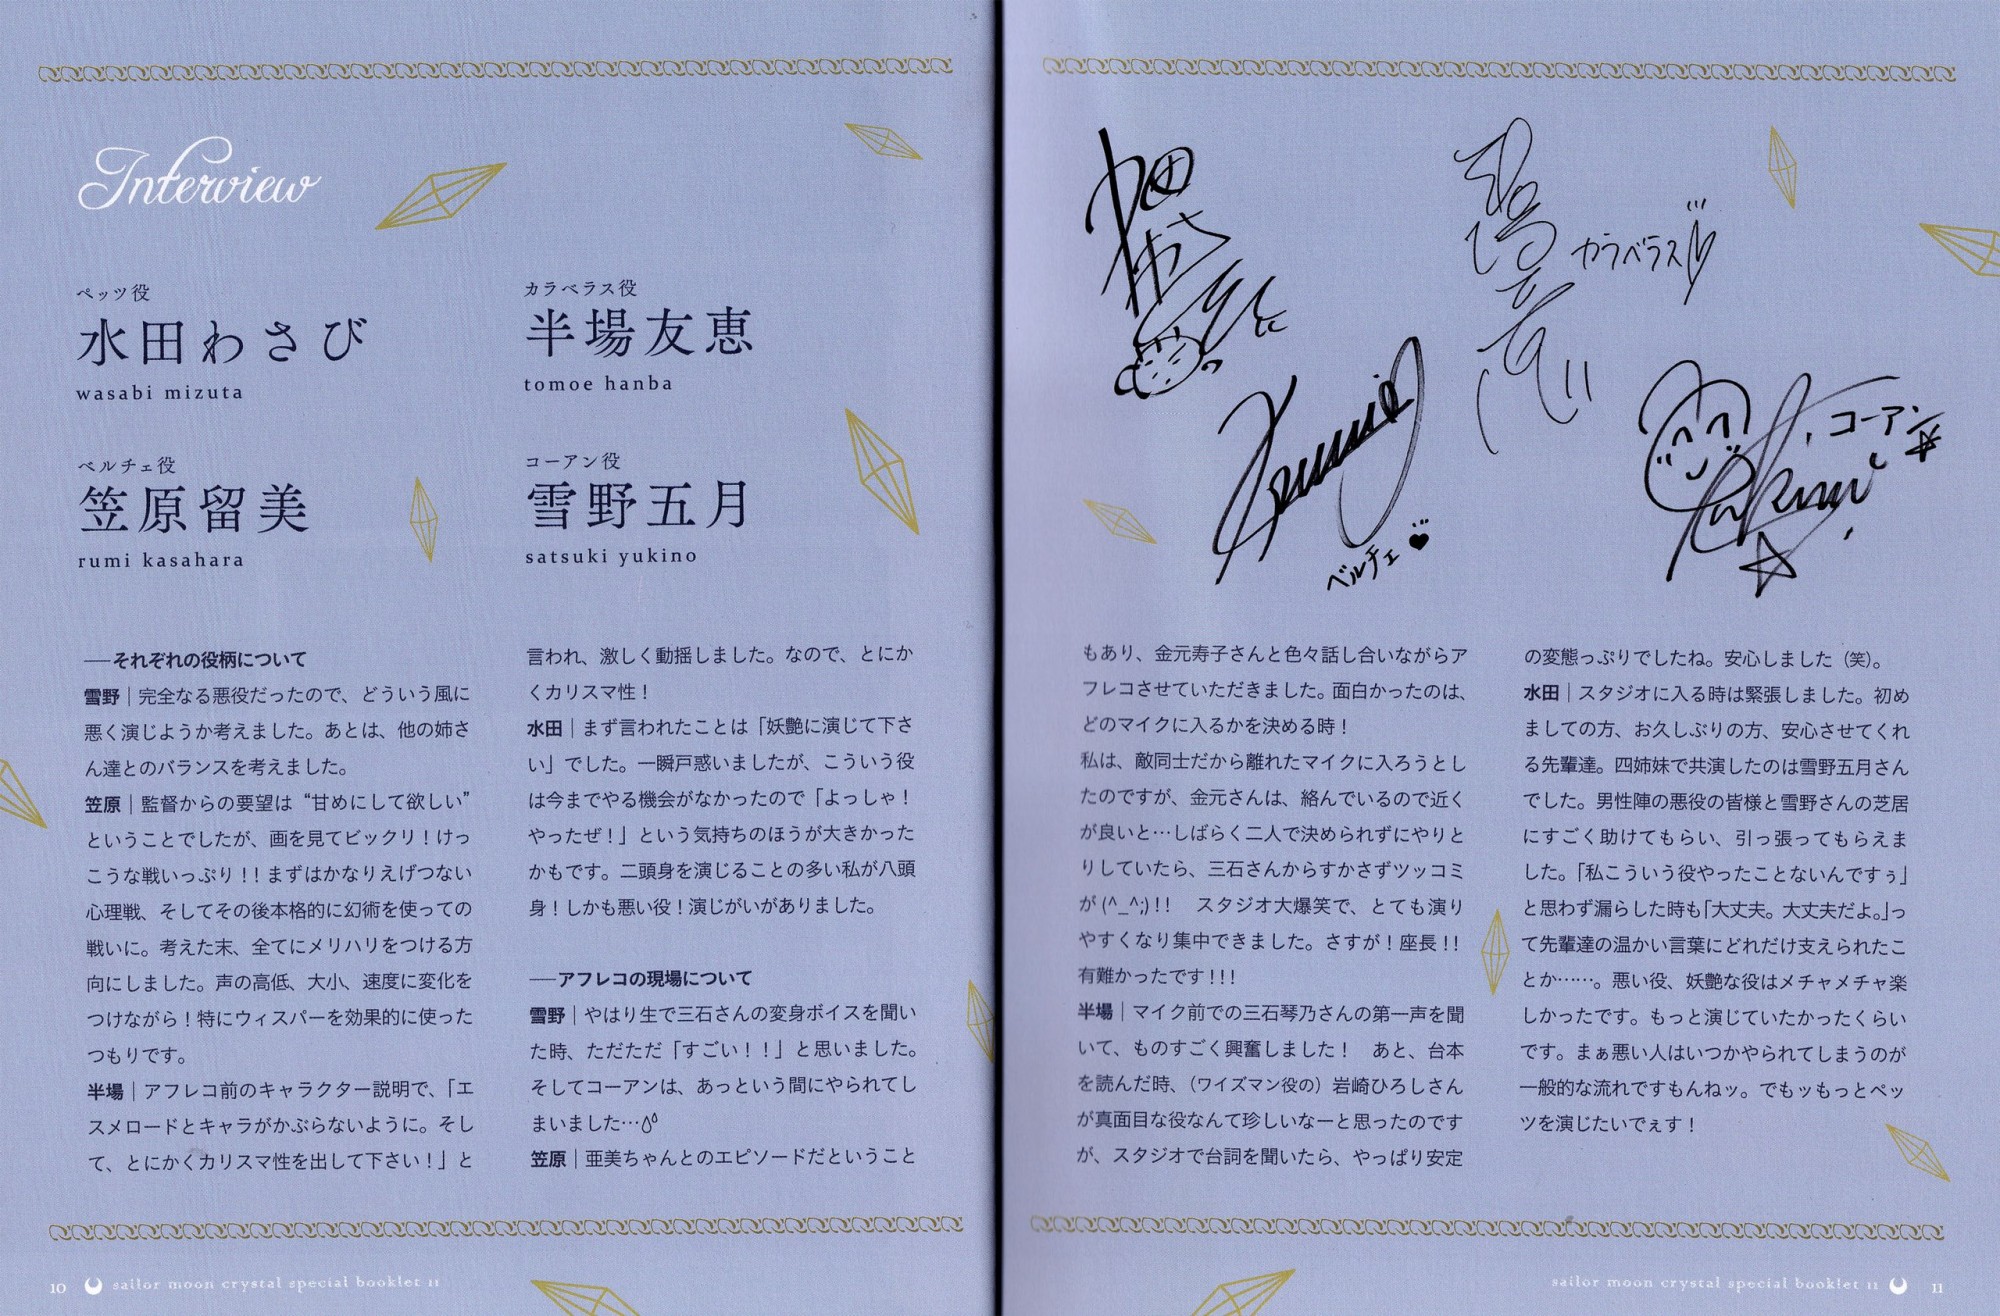 Interview
ペッツ役
水田わさび
wasabi mizuta
カラベラス役
半場友恵
tomoe hanba
ベルチェ役
笠原留美
rumi kasahara
コーアン役
雪野五月
satsuki yukino
──それぞれの役柄について
雪野｜完全なる悪役だったので、どういう風に
悪く演じようか考えました。あとは、他の姉さ
ん達とのバランスを考えました。
笠原｜監督からの要望は“甘めにして欲しい”
ということでしたが、画を見てビックリ！けっ
こうな戦いっぷり！！まずはかなりえげつない
心理戦、そしてその後本格的に幻術を使っての
戦いに。考えた末、全てにメリハリをつける方
向にしました。声の高低、大小、速度に変化を
つけながら！特にウィスパーを効果的に使った
つもりです。
半場｜アフレコ前のキャラクター説明で、「エ
スメロードとキャラがかぶらないように。そし
て、とにかくカリスマ性を出して下さい！」と
言われ、激しく動揺しました。なので、とにか
くカリスマ性！
水田｜まず言われたことは「妖艶に演じて下さ
い」でした。一瞬戸惑いましたが、こういう役
は今までやる機会がなかったので「よっしゃ！
やったぜ！」という気持ちのほうが大きかった
かもです。二頭身を演じることの多い私が八頭
身！しかも悪い役！演じがいがありました。
──アフレコの現場について
雪野｜やはり生で三石さんの変身ボイスを聞い
た時、ただただ「すごい！！」と思いました。
そしてコーアンは、あっという間にやられてし
まいました…
笠原｜亜美ちゃんとのエピソードだということ
10 sailor moon crystal special booklet 11
水田わさび
カラベラス
コーアン
ベルチェ
もあり、金元寿子さんと色々話し合いながらア
フレコさせていただきました。面白かったのは、
どのマイクに入るかを決める時！
私は、敵同士だから離れたマイクに入ろうとし
たのですが、金元さんは、絡んでいるので近く
が良いと…しばらく二人で決められずにやりと
りしていたら、三石さんからすかさずツッコミ
が(^_^;)！！　スタジオ大爆笑で、とても演り
やすくなり集中できました。さすが！座長！！
有難かったです！！！
半場｜マイク前での三石琴乃さんの第一声を聞
いて、ものすごく興奮しました！　あと、台本
を読んだ時、（ワイズマン役の）岩崎ひろしさん
が真面目な役なんて珍しいなーと思ったのです
が、スタジオで台詞を聞いたら、やっぱり安定
の変態っぷりでしたね。安心しました（笑）。
水田｜スタジオに入る時は緊張しました。初め
ましての方、お久しぶりの方、安心させてくれ
る先輩達。四姉妹で共演したのは雪野五月さん
でした。男性陣の悪役の皆様と雪野さんの芝居
にすごく助けてもらい、引っ張ってもらえま
した。「私こういう役やったことないんですぅ」
と思わず漏らした時も「大丈夫。大丈夫だよ。」っ
て先輩達の温かい言葉にどれだけ支えられたこ
とか……。悪い役、妖艶な役はメチャメチャ楽
しかったです。もっと演じていたかったくらい
です。まぁ悪い人はいつかやられてしまうのが
一般的な流れですもんねッ。でもッもっとペッ
ツを演じたいでぇす！
sailor moon crystal special booklet 11 11